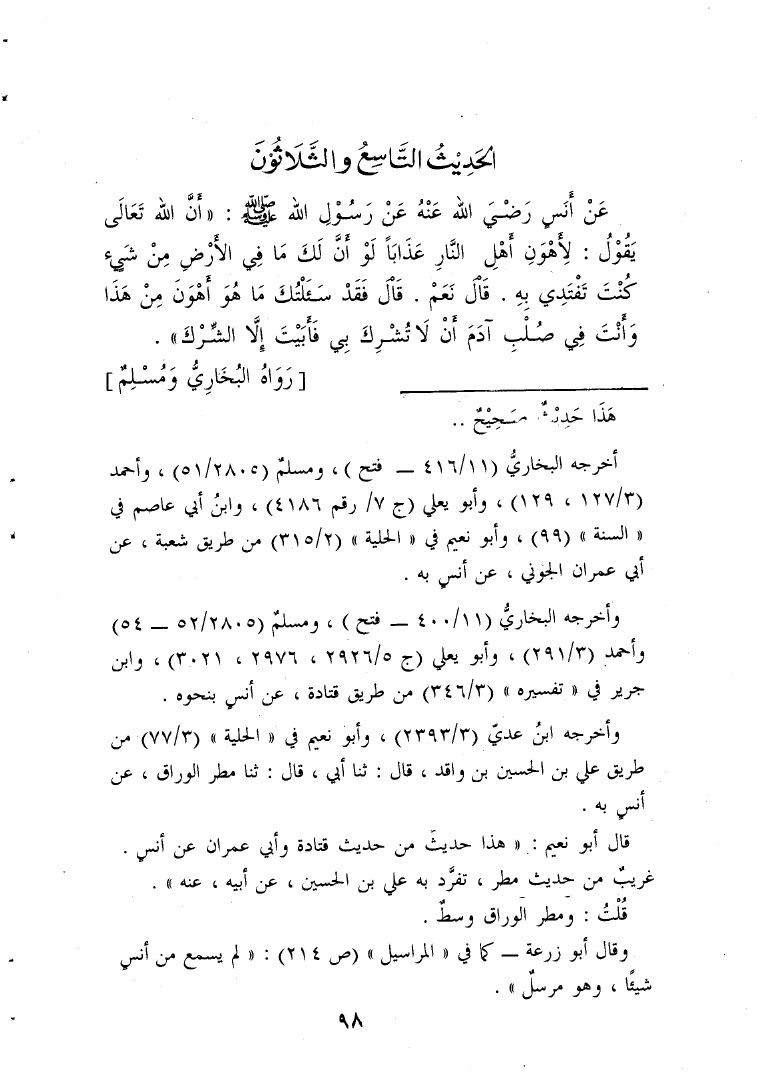 الحَدِيْثُ التَّاسِعُ والثَّلَاثُوْنَ
عَنْ أَنَسٍ رَضْيَ الله عَنْهُ عَنْ رَسُوْلِ الله ﷺ : «أَنَّ الله تَعَالَى
يَقُوْلُ : لِأَهْوَنِ أَهْلِ النَّارِ عَذَابَاً لَوْ أَنَّ لَكَ مَا فِي الأَرْضِ مِنْ شَيْءٍ
كُنْتَ تَفْتَدِي بِهِ . قَالَ نَعَمْ . قَالَ فَقَدْ سَئَلْتُكَ مَا هُوَ أَهْوَنَ مِنْ هَذَا
وَأَنْتَ فِي صُلْبِ آدَمَ أَنْ لَا تُشْرِكَ بِي فَأَبَيْتَ إِلَّا الشِّرْكَ» .
[رَوَاهُ البُخَارِيُّ وَمُسْلِمٌ]
هَذَا حَدِيْثٌ صَحِيْحٌ ..
أخرجه البخاريُّ (٤١٦/١١ ــ فتح ) ، ومسلمٌ (٥١/٢٨٠٥) ، وأحمد
(١٢٧/٣ ، ١٢٩) ، وأبو يعلي (ج ٧/ رقم ٤١٨٦) ، وابنُ أبي عاصم في
« السنة » (٩٩) ، وأبو نعيم في « الحلية » (٣١٥/٢) من طريق شعبة ، عن
أبي عمران الجوني ، عن أنسٍ به .
وأخرجه البخاريُّ (٤٠٠/١١ ــ فتح ) ، ومسلمٌ (٥٢/٢٨٠٥ ــ ٥٤)
وأحمد (٢٩١/٣) ، وأبو يعلي (ج ٢٩٢٦/٥ ، ٢٩٧٦ ، ٣٠٢١) ، وابن
جرير في « تفسيره » (٣٤٦/٣) من طريق قتادة ، عن أنسٍ بنحوه .
وأخرجه ابنُ عديّ (٢٣٩٣/٣) ، وأبو نعيم في « الحلية » (٧٧/٣) من
طريق علي بن الحسين بن واقد ، قال : ثنا أبي ، قال : ثنا مطر الوراق ، عن
أنسٍ به .
قال أبو نعيم : « هذا حديثٌ من حديث قتادة وأبي عمران عن أنس .
غريبٌ من حديث مطر ، تفرَّد به علي بن الحسين ، عن أبيه ، عنه » .
قُلْتُ : ومطر الوراق وسطٌ .
وقال أبو زرعة ــ كما في « المراسيل » (ص ٢١٤) : « لم يسمع من أنسٍ
شيئًا ، وهو مرسلٌ » .
٩٨